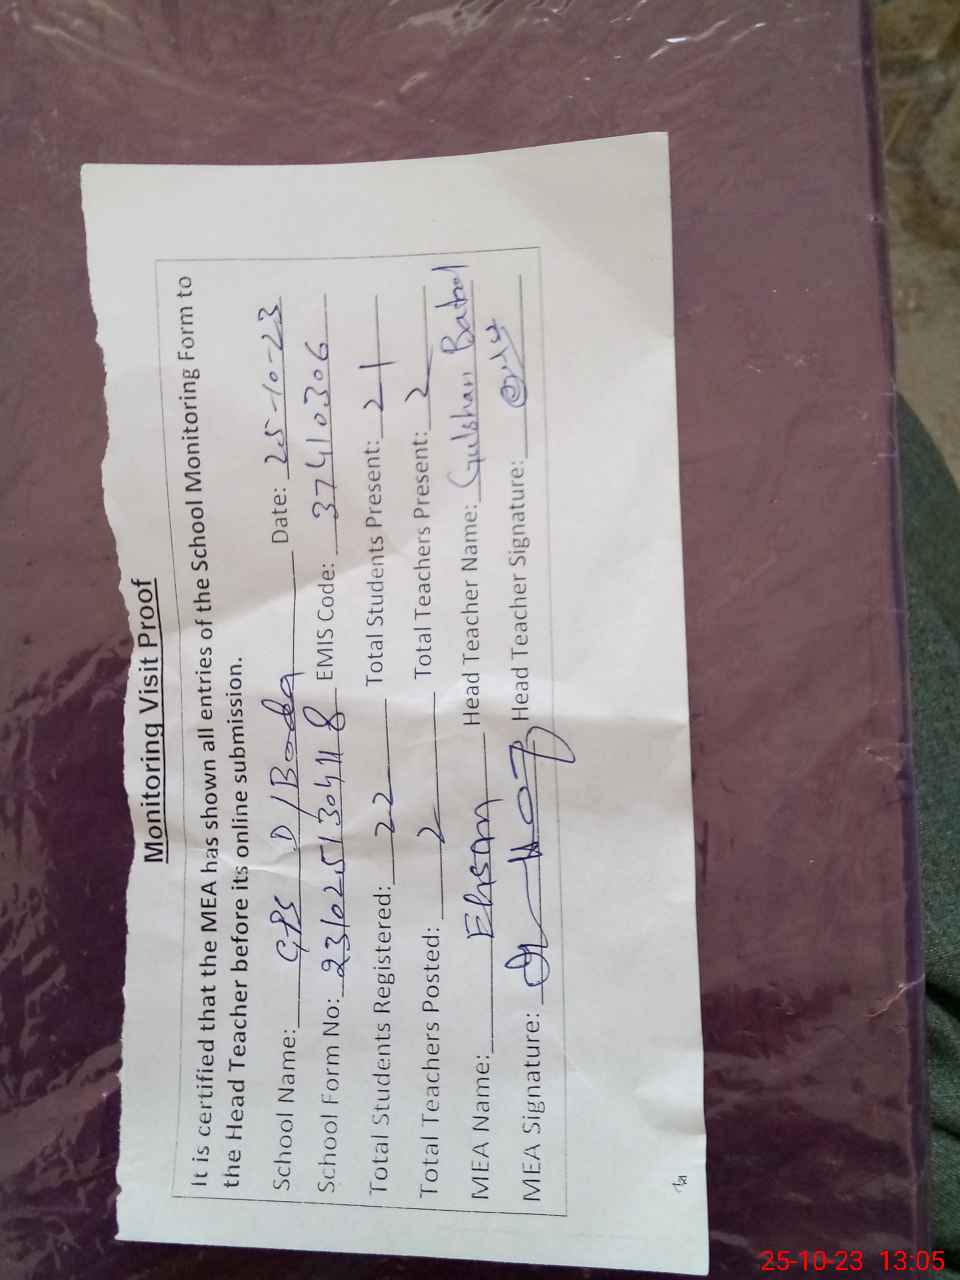 Monitoring Visit Proof
It is certified that the MEA has shown all entries of the School Monitoring Form to
the Head Teacher before its online submission.
School Name: GPS D/Badea Date: 25-10-23
School Form No: 23102513041 8 EMIS Code: 37410306
Total Students Registered: 22 Total Students Present: 21
Total Teachers Posted: 2 Total Teachers Present: 2
MEA Name: Ehsan Head Teacher Name: Gulshan Batool
MEA Signature: Head Teacher Signature:
25-10-23 13:05